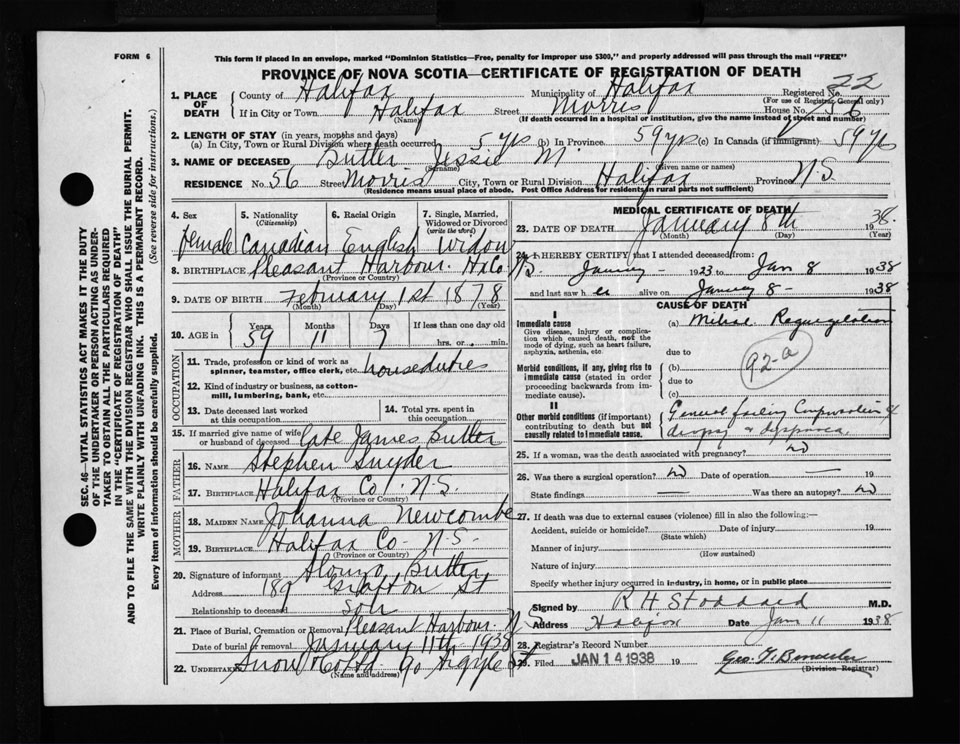 FORM 6
This form if placed in an envelope, marked "Dominion Statistics—Free, penalty for improper use $300," and properly addressed will pass through the mail "FREE"
PROVINCE OF NOVA SCOTIA—CERTIFICATE OF REGISTRATION OF DEATH
22
1. PLACE OF DEATH
County of Halifax Municipality of Halifax Registered No.
(For use of Registrar General only)
If in City or Town Halifax Street Morris House No. 56
(Name) (If death occurred in a hospital or institution, give the name instead of street and number)
2. LENGTH OF STAY (in years, months and days)
(a) In City, Town or Rural Division where death occurred 5 yrs (b) In Province 59 yrs (c) In Canada (if immigrant) 59 yrs
3. NAME OF DECEASED Butler Jessie M.
(Surname) (Given name or names)
RESIDENCE No. 56 Street Morris City, Town or Rural Division Halifax Province N.S.
(Residence means usual place of abode. Post Office Address for residents in rural parts not sufficient)
4. Sex Female
5. Nationality (Citizenship) Canadian
6. Racial Origin English
7. Single, Married, Widowed or Divorced (write the word) Widow
8. BIRTHPLACE Pleasant Harbour. Hx Co N.S.
(Province or Country)
9. DATE OF BIRTH February 1st 1878
(Month) (Day) (Year)
10. AGE in Years Months Days If less than one day old
59 11 7 hrs. or min.
OCCUPATION
11. Trade, profession or kind of work as spinner, teamster, office clerk, etc. houseduties
12. Kind of industry or business, as cotton-mill, lumbering, bank, etc.
13. Date deceased last worked at this occupation
14. Total yrs. spent in this occupation
15. If married give name of wife or husband of deceased Late James Butler
FATHER
16. NAME Stephen Snyder
17. BIRTHPLACE Halifax Co. N.S.
(Province or Country)
MOTHER
18. MAIDEN NAME Johanna Newcombe
19. BIRTHPLACE Halifax Co - N.S.
(Province or Country)
20. Signature of informant Alonzo Butler
Address 189 Grafton St
Relationship to deceased son
21. Place of Burial, Cremation or Removal Pleasant Harbour. N.S.
Date of burial or removal January 11th 1938
22. Undertaker Snow & Co Ltd. 90 Argyle St
(Name and address)
MEDICAL CERTIFICATE OF DEATH
23. DATE OF DEATH January 8th 1938
(Month) (Day) (Year)
24. I HEREBY CERTIFY that I attended deceased from:
January - 1933 to Jan 8 1938
and last saw h er alive on January 8 - 1938
CAUSE OF DEATH
I
Immediate cause
Give disease, injury or complication which caused death, not the mode of dying, such as heart failure, asphyxia, asthenia, etc.
(a) Mitral Regurgitation
due to
92-a
Morbid conditions, if any, giving rise to immediate cause (stated in order proceeding backwards from immediate cause).
(b)
due to
(c)
II
Other morbid conditions (if important) contributing to death but not causally related to immediate cause.
General failing Compensation &
dropsy & dyspnoea
25. If a woman, was the death associated with pregnancy? no
26. Was there a surgical operation? no Date of operation — 19
State findings — Was there an autopsy? no
27. If death was due to external causes (violence) fill in also the following:—
Accident, suicide or homicide? Date of injury 19
(State which)
Manner of injury
(How sustained)
Nature of injury
Specify whether injury occurred in industry, in home, or in public place
Signed by R H Stoddard M.D.
Address Halifax Date Jan 11 1938
28. Registrar's Record Number
29. Filed JAN 14 1938 19
(Division Registrar)
SEC. 46—VITAL STATISTICS ACT MAKES IT THE DUTY
OF THE UNDERTAKER OR PERSON ACTING AS UNDER-
TAKER TO OBTAIN ALL THE PARTICULARS REQUIRED
IN THE "CERTIFICATE OF REGISTRATION OF DEATH"
AND TO FILE THE SAME WITH THE DIVISION REGISTRAR WHO SHALL ISSUE THE BURIAL PERMIT.
WRITE PLAINLY WITH UNFADING INK. THIS IS A PERMANENT RECORD.
Every item of information should be carefully supplied. (See reverse side for instructions.)